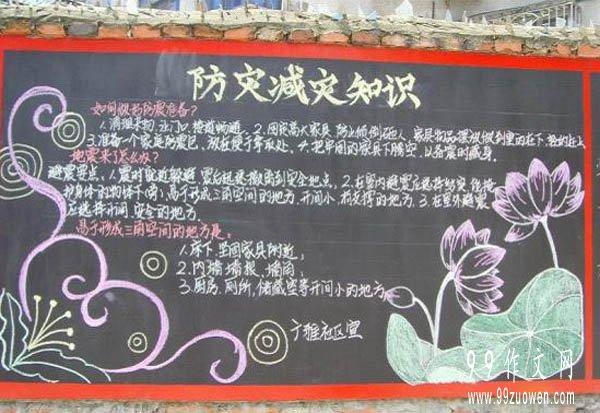 防灾减灾知识
如何做好防震准备?
1.清理杂物,让门口、楼道畅通。2.固定高大家具,防止倾倒砸人,家具物品摆放做到重的在下,轻的在上
3.准备一个家庭防震包,放在便于拿取处。4.把牢固的家具下腾空,以备震时藏身。
地震来了怎么办?
避震要点:1.震时就近躲避,震后迅速撤离到安全地点。2.在室内避震应选择结实、能掩
护身体的物体下(旁)、易于形成三角空间的地方,开间小、有支撑的地方。3.在室外避震
应选择开阔、安全的地方。
易于形成三角空间的地方是。
1.床下、坚固家具附近;
2.内墙墙根、墙角;
3.厨房、厕所、储藏室等开间小的地方。
雅社区宣
99作文网
www.99zuowen.com